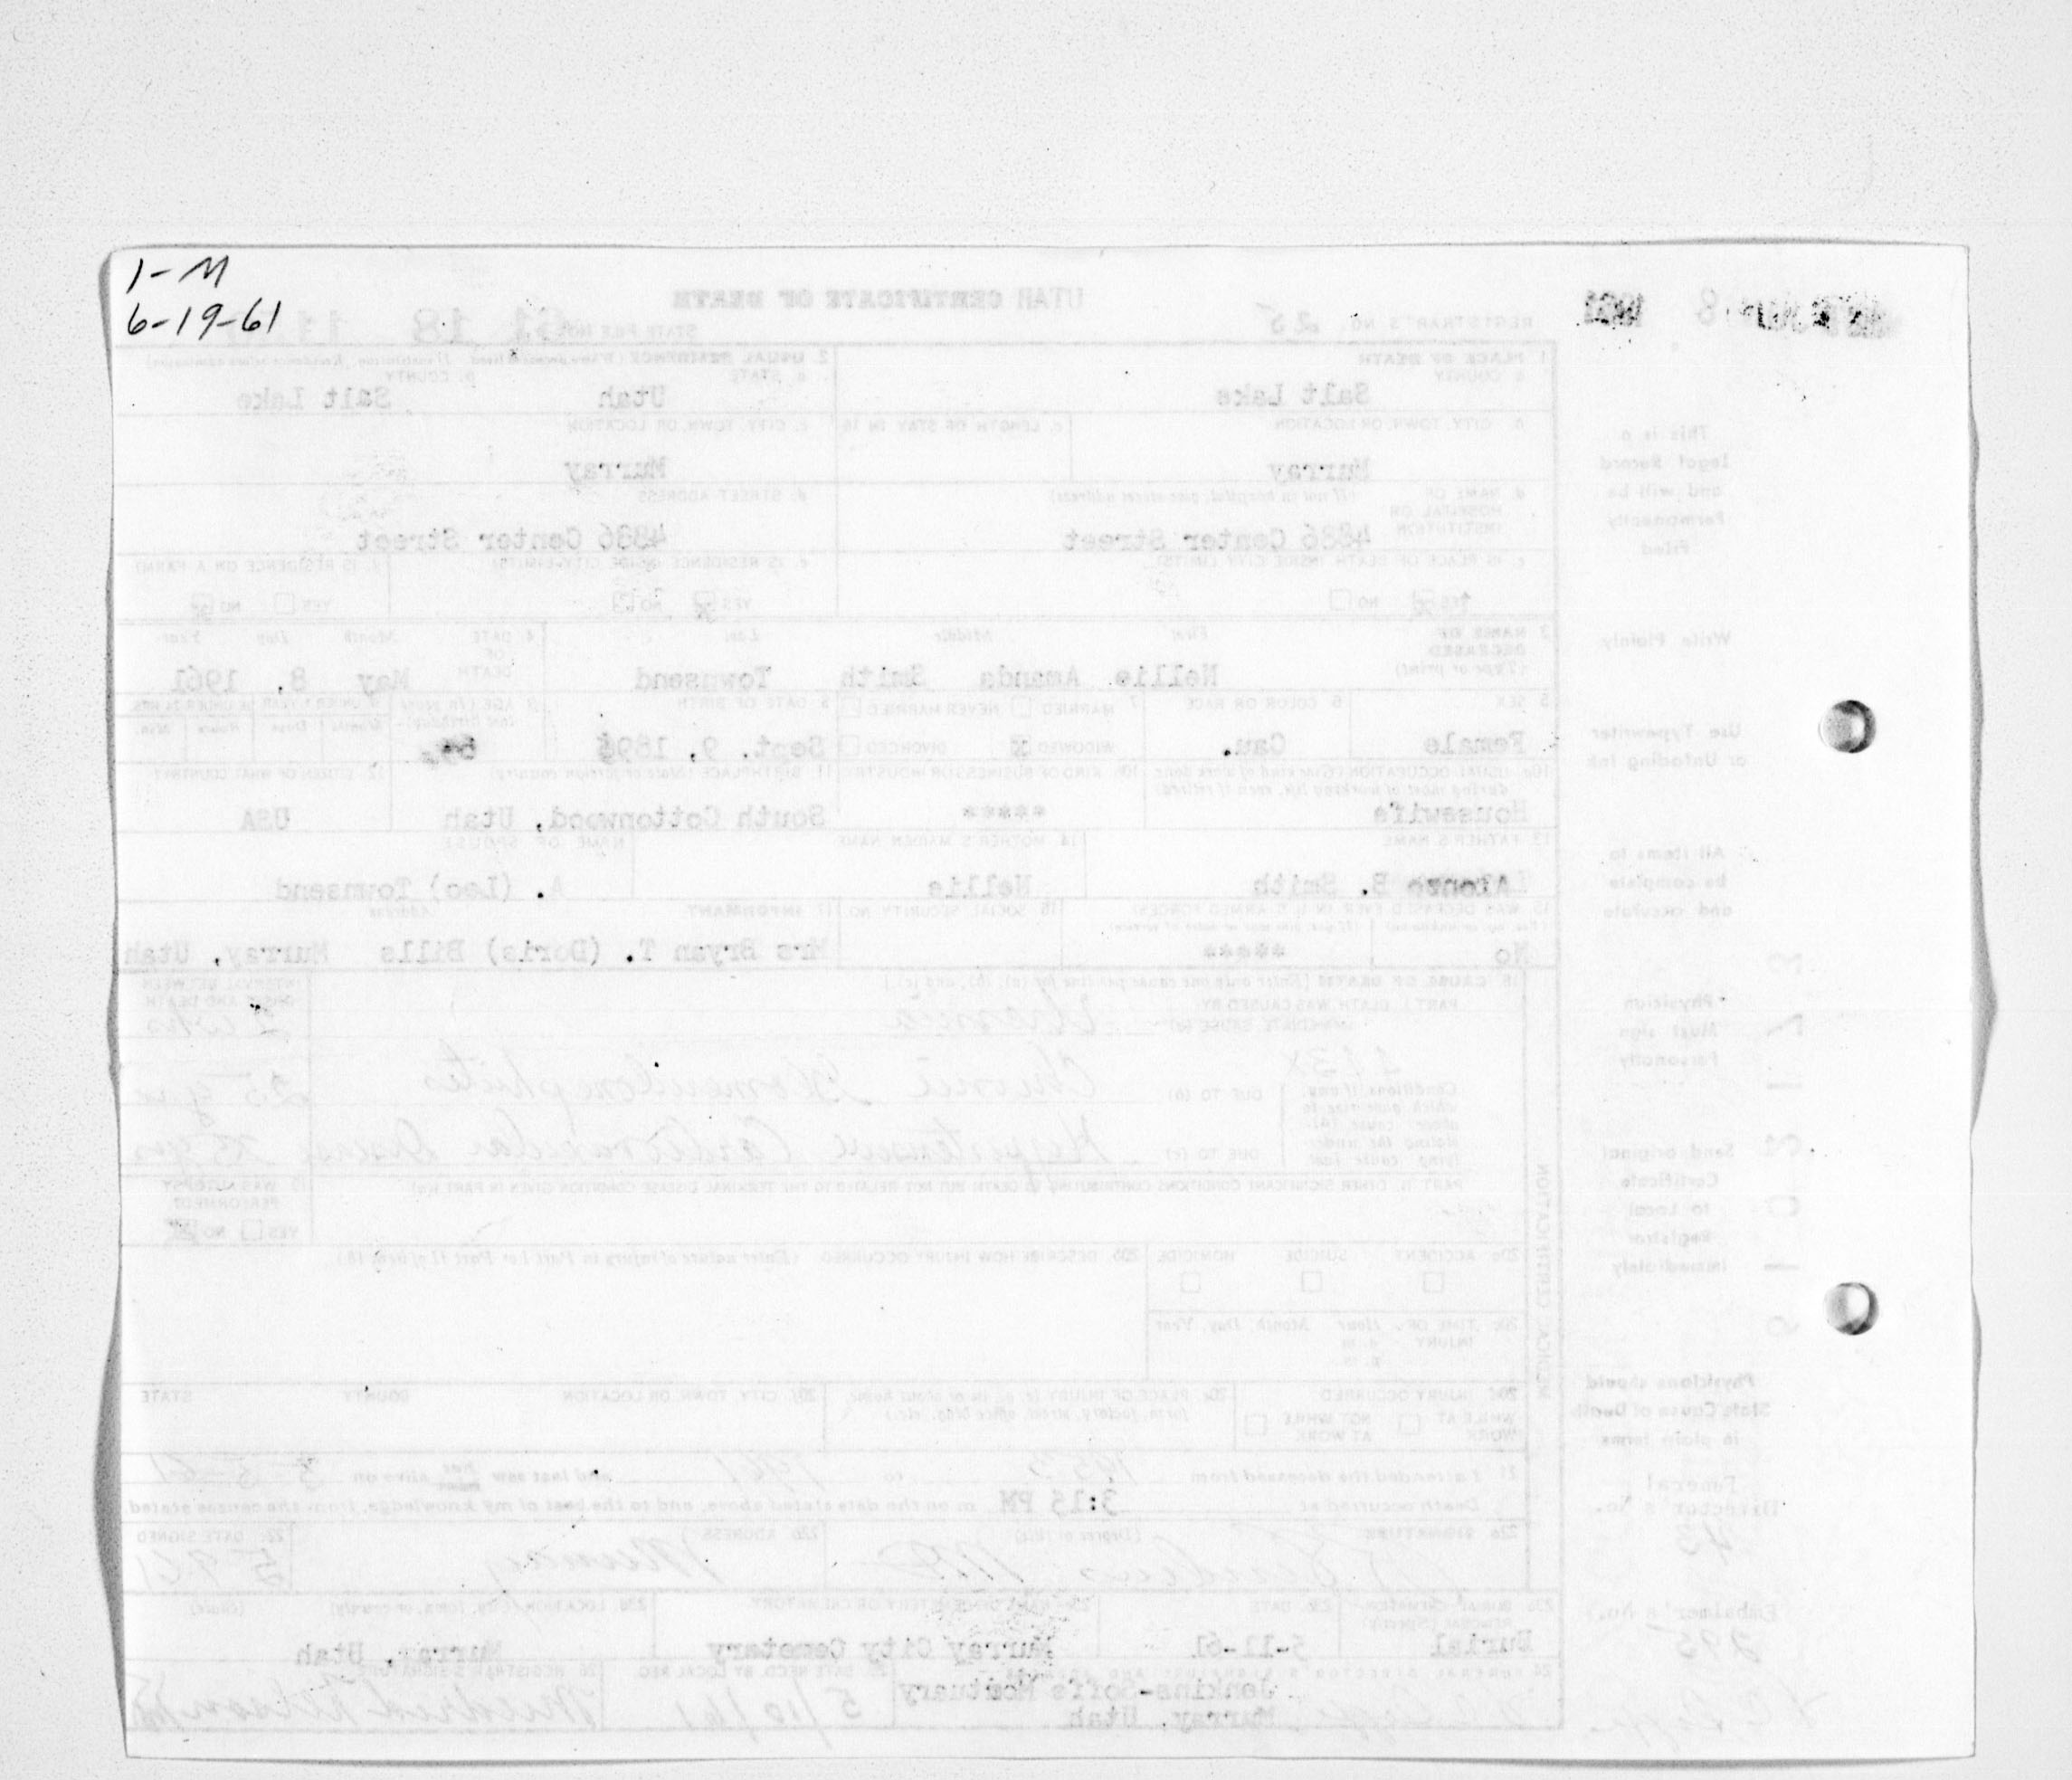 1-M
6-19-61
UTAH CERTIFICATE OF DEATH
REGISTRAR'S NO. 25
STATE FILE NO. 61 18
1. PLACE OF DEATH
a. COUNTY
Salt Lake
2. USUAL RESIDENCE (Where deceased lived. If institution, Residence before admission)
a. STATE
Utah
b. COUNTY
Salt Lake
b. CITY, TOWN, OR LOCATION
Murray
c. LENGTH OF STAY IN 1b
c. CITY, TOWN, OR LOCATION
Murray
d. NAME OF HOSPITAL OR INSTITUTION (If not in hospital, give street address)
4886 Center Street
d. STREET ADDRESS
4886 Center Street
e. IS PLACE OF DEATH INSIDE CITY LIMITS?
YES NO
e. IS RESIDENCE INSIDE CITY LIMITS?
YES NO
f. IS RESIDENCE ON A FARM?
YES NO
3. NAME OF DECEASED (Type or print)
First Middle Last
Nellie Amanda Smith Townsend
4. DATE OF DEATH Month Day Year
May 8, 1961
5. SEX
Female
6. COLOR OR RACE
Cau.
7. MARRIED NEVER MARRIED
WIDOWED X DIVORCED
8. DATE OF BIRTH
Sept. 9, 1896
9. AGE (In years last birthday)
IF UNDER 1 YEAR IF UNDER 24 HRS.
Months Days Hours Min.
10a. USUAL OCCUPATION (Give kind of work done during most of working life, even if retired)
Housewife
10b. KIND OF BUSINESS OR INDUSTRY
****
11. BIRTHPLACE (State or foreign country)
South Cottonwood, Utah
12. CITIZEN OF WHAT COUNTRY?
USA
13. FATHER'S NAME
Alonzo B. Smith
14. MOTHER'S MAIDEN NAME
Nellie
NAME OF SPOUSE
A. (Leo) Townsend
15. WAS DECEASED EVER IN U.S. ARMED FORCES?
(Yes, no, or unknown) (If yes, give war or dates of service)
No *****
16. SOCIAL SECURITY NO.
17. INFORMANT Address
Mrs Bryan T. (Doris) Bills Murray, Utah
18. CAUSE OF DEATH [Enter only one cause per line for (a), (b), and (c).]
INTERVAL BETWEEN ONSET AND DEATH
PART I. DEATH WAS CAUSED BY:
IMMEDIATE CAUSE (a) Uremia 2 wks
Conditions, if any, which gave rise to above cause (a), stating the underlying cause last
DUE TO (b) Chronic Glomerulonephritis 25 yrs
DUE TO (c) Hypertensive Cardiovascular Disease
PART II. OTHER SIGNIFICANT CONDITIONS CONTRIBUTING TO DEATH BUT NOT RELATED TO THE TERMINAL DISEASE CONDITION GIVEN IN PART I(a)
19. WAS AUTOPSY PERFORMED?
YES NO
20a. ACCIDENT SUICIDE HOMICIDE
20b. DESCRIBE HOW INJURY OCCURRED (Enter nature of injury in Part I or Part II of item 18.)
20c. TIME OF INJURY Hour Month, Day, Year
a.m.
p.m.
20d. INJURY OCCURRED
WHILE AT WORK NOT WHILE AT WORK
20e. PLACE OF INJURY (e.g., in or about home, farm, factory, street, office bldg., etc.)
20f. CITY, TOWN, OR LOCATION COUNTY STATE
21. I attended the deceased from to 1961 and last saw alive on
Death occurred at 3:15 PM m on the date stated above; and to the best of my knowledge, from the causes stated.
22a. SIGNATURE (Degree or title)
22b. ADDRESS
Murray
22c. DATE SIGNED
5 9 61
23a. BURIAL, CREMATION, REMOVAL (Specify)
Burial
23b. DATE
5-11-61
23c. NAME OF CEMETERY OR CREMATORY
Murray City Cemetery
23d. LOCATION (City, town, or county) (State)
Murray, Utah
24. FUNERAL DIRECTOR'S SIGNATURE AND ADDRESS
Jenkins-Soffe Mortuary
Murray, Utah
25. DATE RECD. BY LOCAL REG.
5/10/61
26. REGISTRAR'S SIGNATURE
MEDICAL CERTIFICATION
This is a
Legal Record
and will be
Permanently
Filed
Write Plainly
Use Typewriter
or Unfading Ink
All items to
be complete
and accurate
Physician
Must sign
Personally
Send original
Certificate
to Local
Registrar
Immediately
Physicians should
State Cause of Death
in plain terms
Funeral
Director's No.
43
Embalmer's No.
295